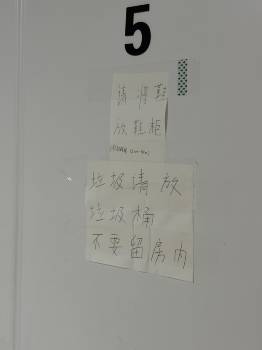 5
請將鞋
放鞋柜
垃圾请放
垃圾桶
不要留房内